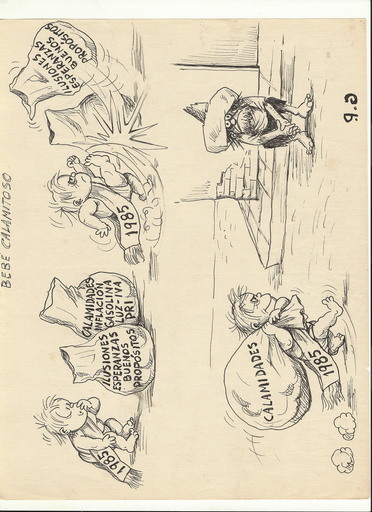 BEBE CALAMITOSO
1985
ILUSIONES
ESPERANZAS
BUENOS
PROPOSITOS
CALAMIDADES
INFLACION
GASOLINA
LUZ-IVA
PRI
1985
ILUSIONES
ESPERANZAS
BUENOS
PROPOSITOS
CALAMIDADES
1985